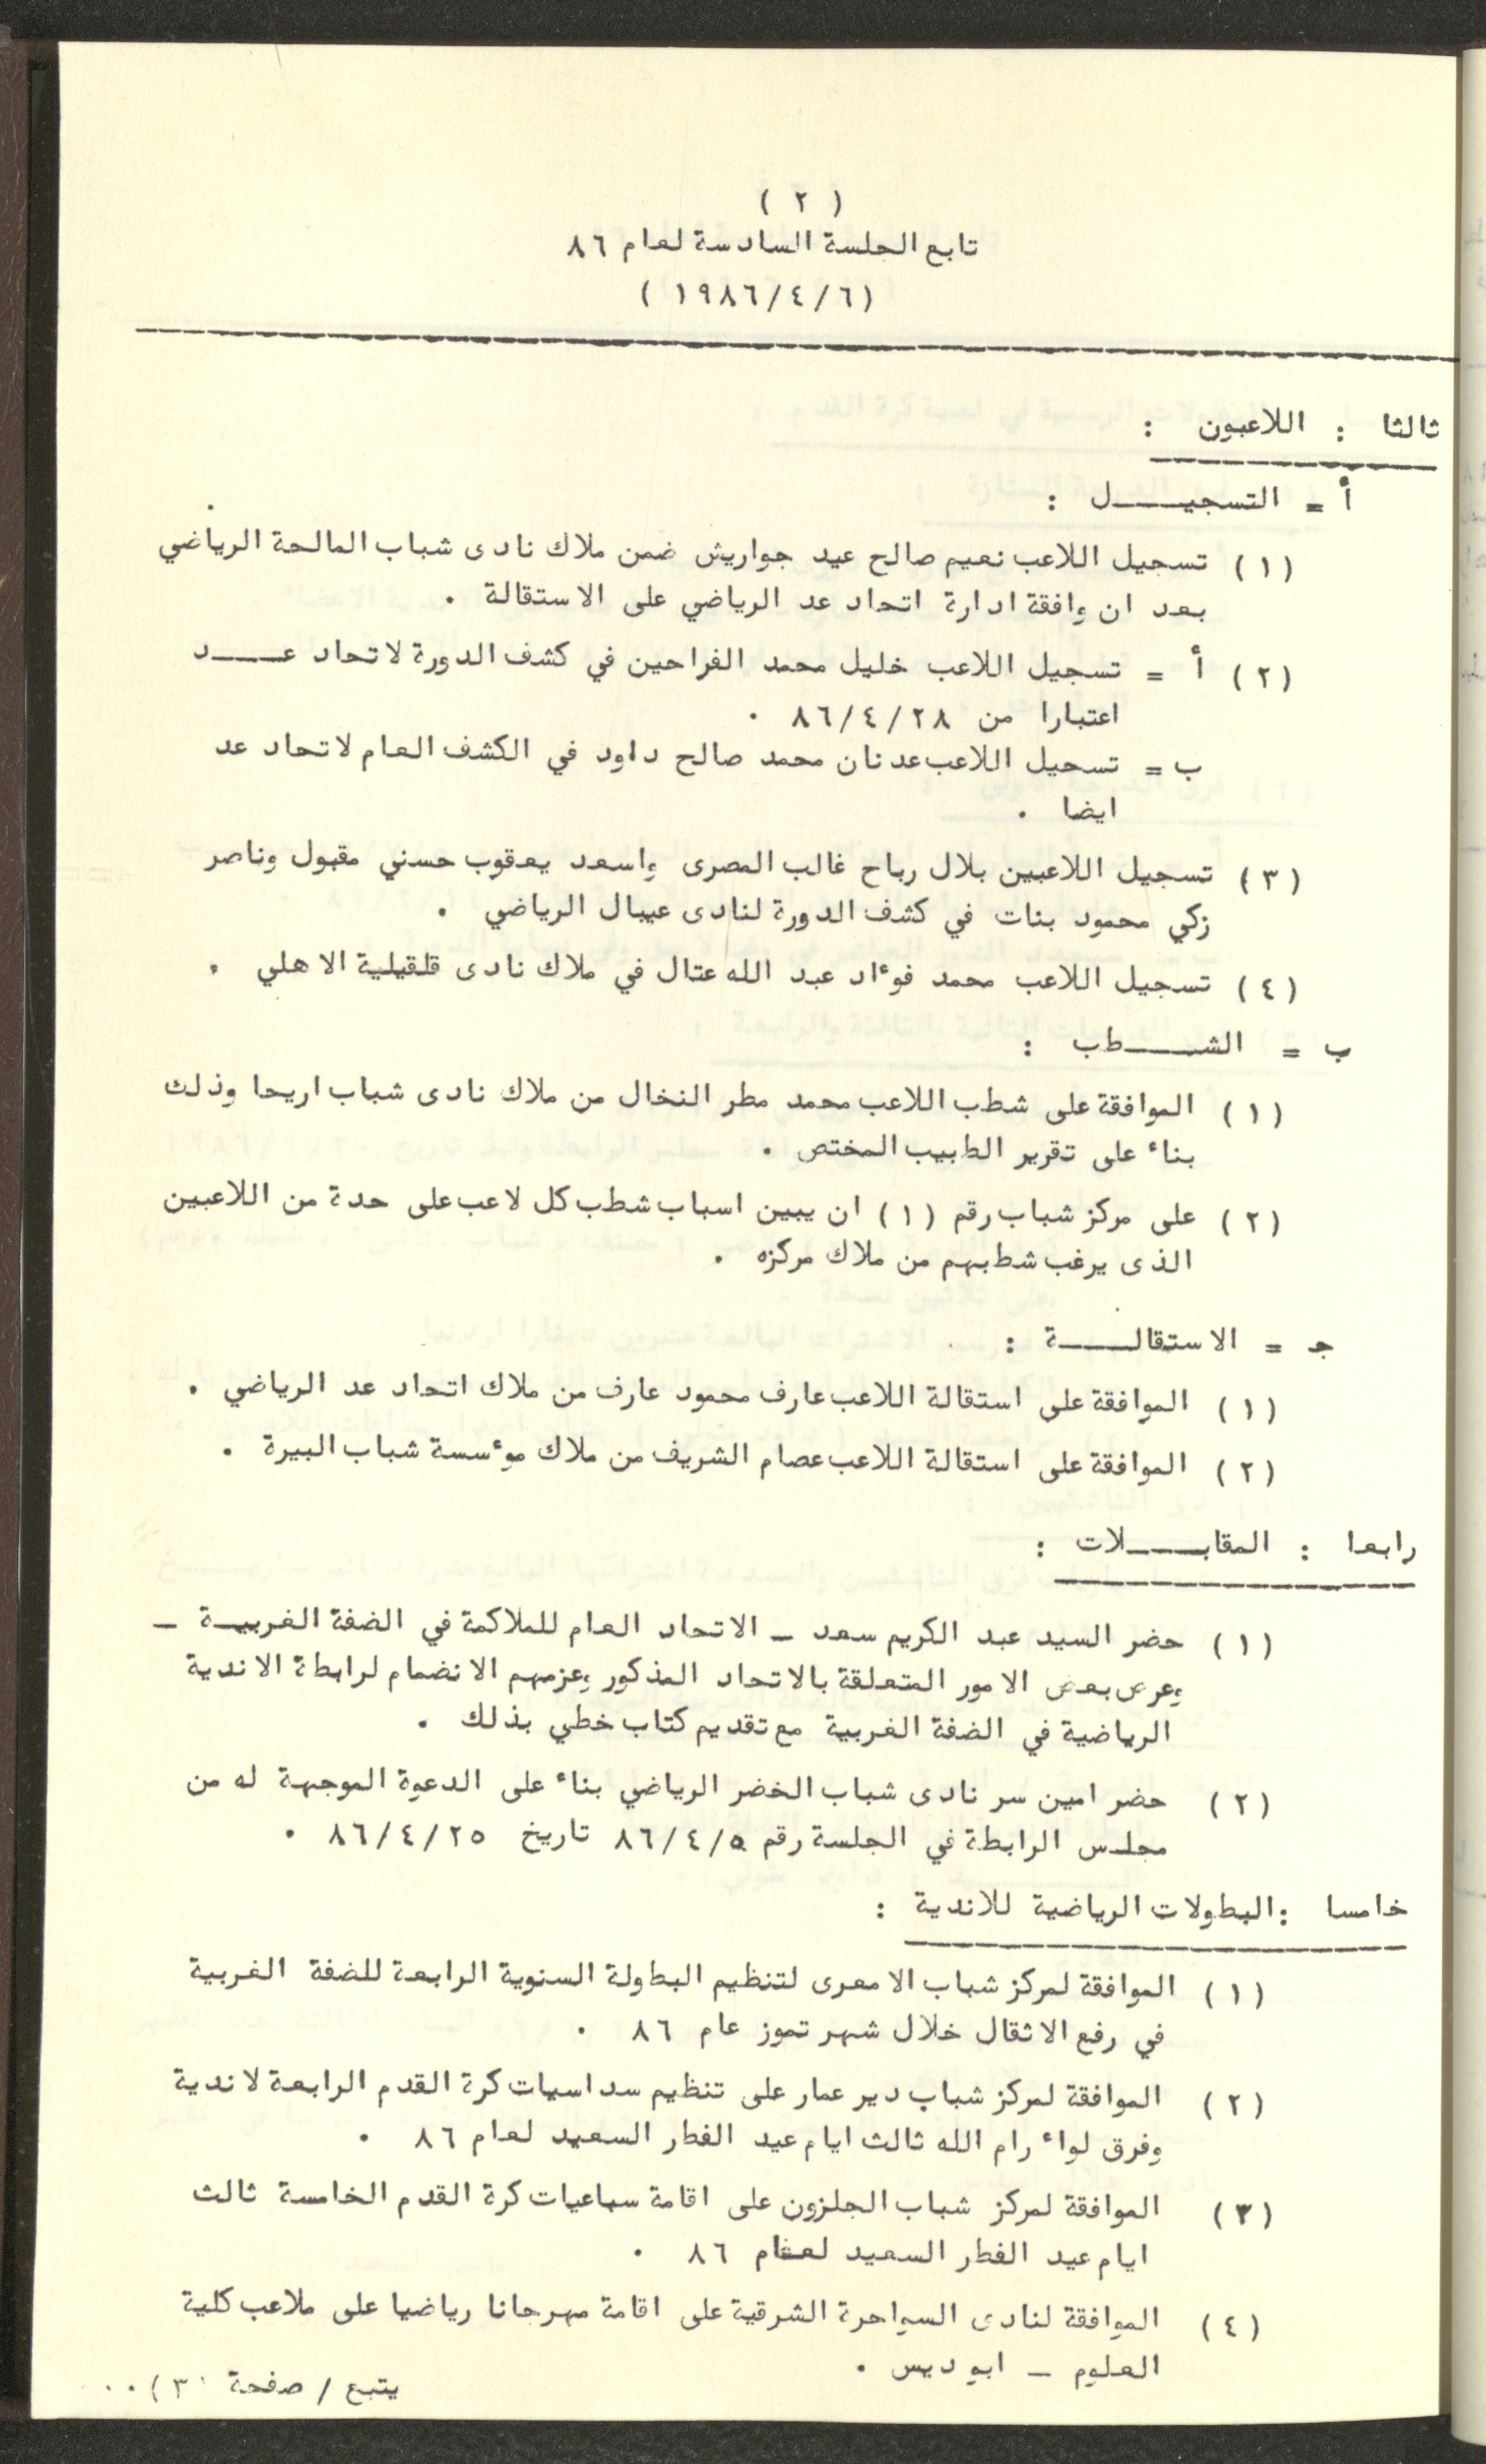 ( ٢ )
تابع الجلسة السادسة لعام ٨٦
( ١٩٨٦/٤/٦ )
ثالثا : اللاعبون :
أ = التسجيـــــل :
( ١ ) تسجيل اللاعب نعيم صالح عيد جواريش ضمن ملاك نادى شباب المالحة الرياضي
بعد ان وافقة ادارة اتحاد عد الرياضي على الاستقالة .
( ٢ ) أ = تسجيل اللاعب خليل محمد الفراحين في كشف الدورة لاتحاد عــــد
اعتبارا من ٨٦/٤/٢٨ .
ب = تسجيل اللاعب عدنان محمد صالح داود في الكشف العام لاتحاد عد
ايضا .
( ٣ ) تسجيل اللاعبين بلال رباح غالب المصرى واسعد يعقوب حسني مقبول وناصر
زكي محمود بنات في كشف الدورة لنادى عيبال الرياضي .
( ٤ ) تسجيل اللاعب محمد فوءاد عبد الله عتال في ملاك نادى قلقيلية الاهلي .
ب = الشـــــطب :
( ١ ) الموافقة على شطب اللاعب محمد مطر النخال من ملاك نادى شباب اريحا وذلك
بناء على تقرير الطبيب المختص .
( ٢ ) على مركز شباب رقم ( ١ ) ان يبين اسباب شطب كل لاعب على حدة من اللاعبين
الذى يرغب شطبهم من ملاك مركزه .
جـ = الاستقالـــــة :
( ١ ) الموافقة على استقالة اللاعب عارف محمود عارف من ملاك اتحاد عد الرياضي .
( ٢ ) الموافقة على استقالة اللاعب عصام الشريف من ملاك موءسسة شباب البيرة .
رابعا : المقابـــــلات :
( ١ ) حضر السيد عبد الكريم سعد ـ الاتحاد العام للملاكمة في الضفة الغربيـة ـ
وعرض بعض الامور المتعلقة بالاتحاد المذكور وعزمهم الانضمام لرابطة الاندية
الرياضية في الضفة الغربية مع تقديم كتاب خطي بذلك .
( ٢ ) حضر امين سر نادى شباب الخضر الرياضي بناء على الدعوة الموجهة له من
مجلس الرابطة في الجلسة رقم ٨٦/٤/٥ تاريخ ٨٦/٤/٢٥ .
خامسا : البطولات الرياضية للاندية :
( ١ ) الموافقة لمركز شباب الامعرى لتنظيم البطولة السنوية الرابعة للضفة الغربية
في رفع الاثقال خلال شهر تموز عام ٨٦ .
( ٢ ) الموافقة لمركز شباب دير عمار على تنظيم سداسيات كرة القدم الرابعة لاندية
وفرق لواء رام الله ثالث ايام عيد الفطر السعيد لعام ٨٦ .
( ٣ ) الموافقة لمركز شباب الجلزون على اقامة سباعيات كرة القدم الخامسة ثالث
ايام عيد الفطر السعيد لعام ٨٦ .
( ٤ ) الموافقة لنادى السواحرة الشرقية على اقامة مهرجانا رياضيا على ملاعب كلية
العلوم ـ ابوديس .
يتبع / صفحة ٣ ) ٠٠